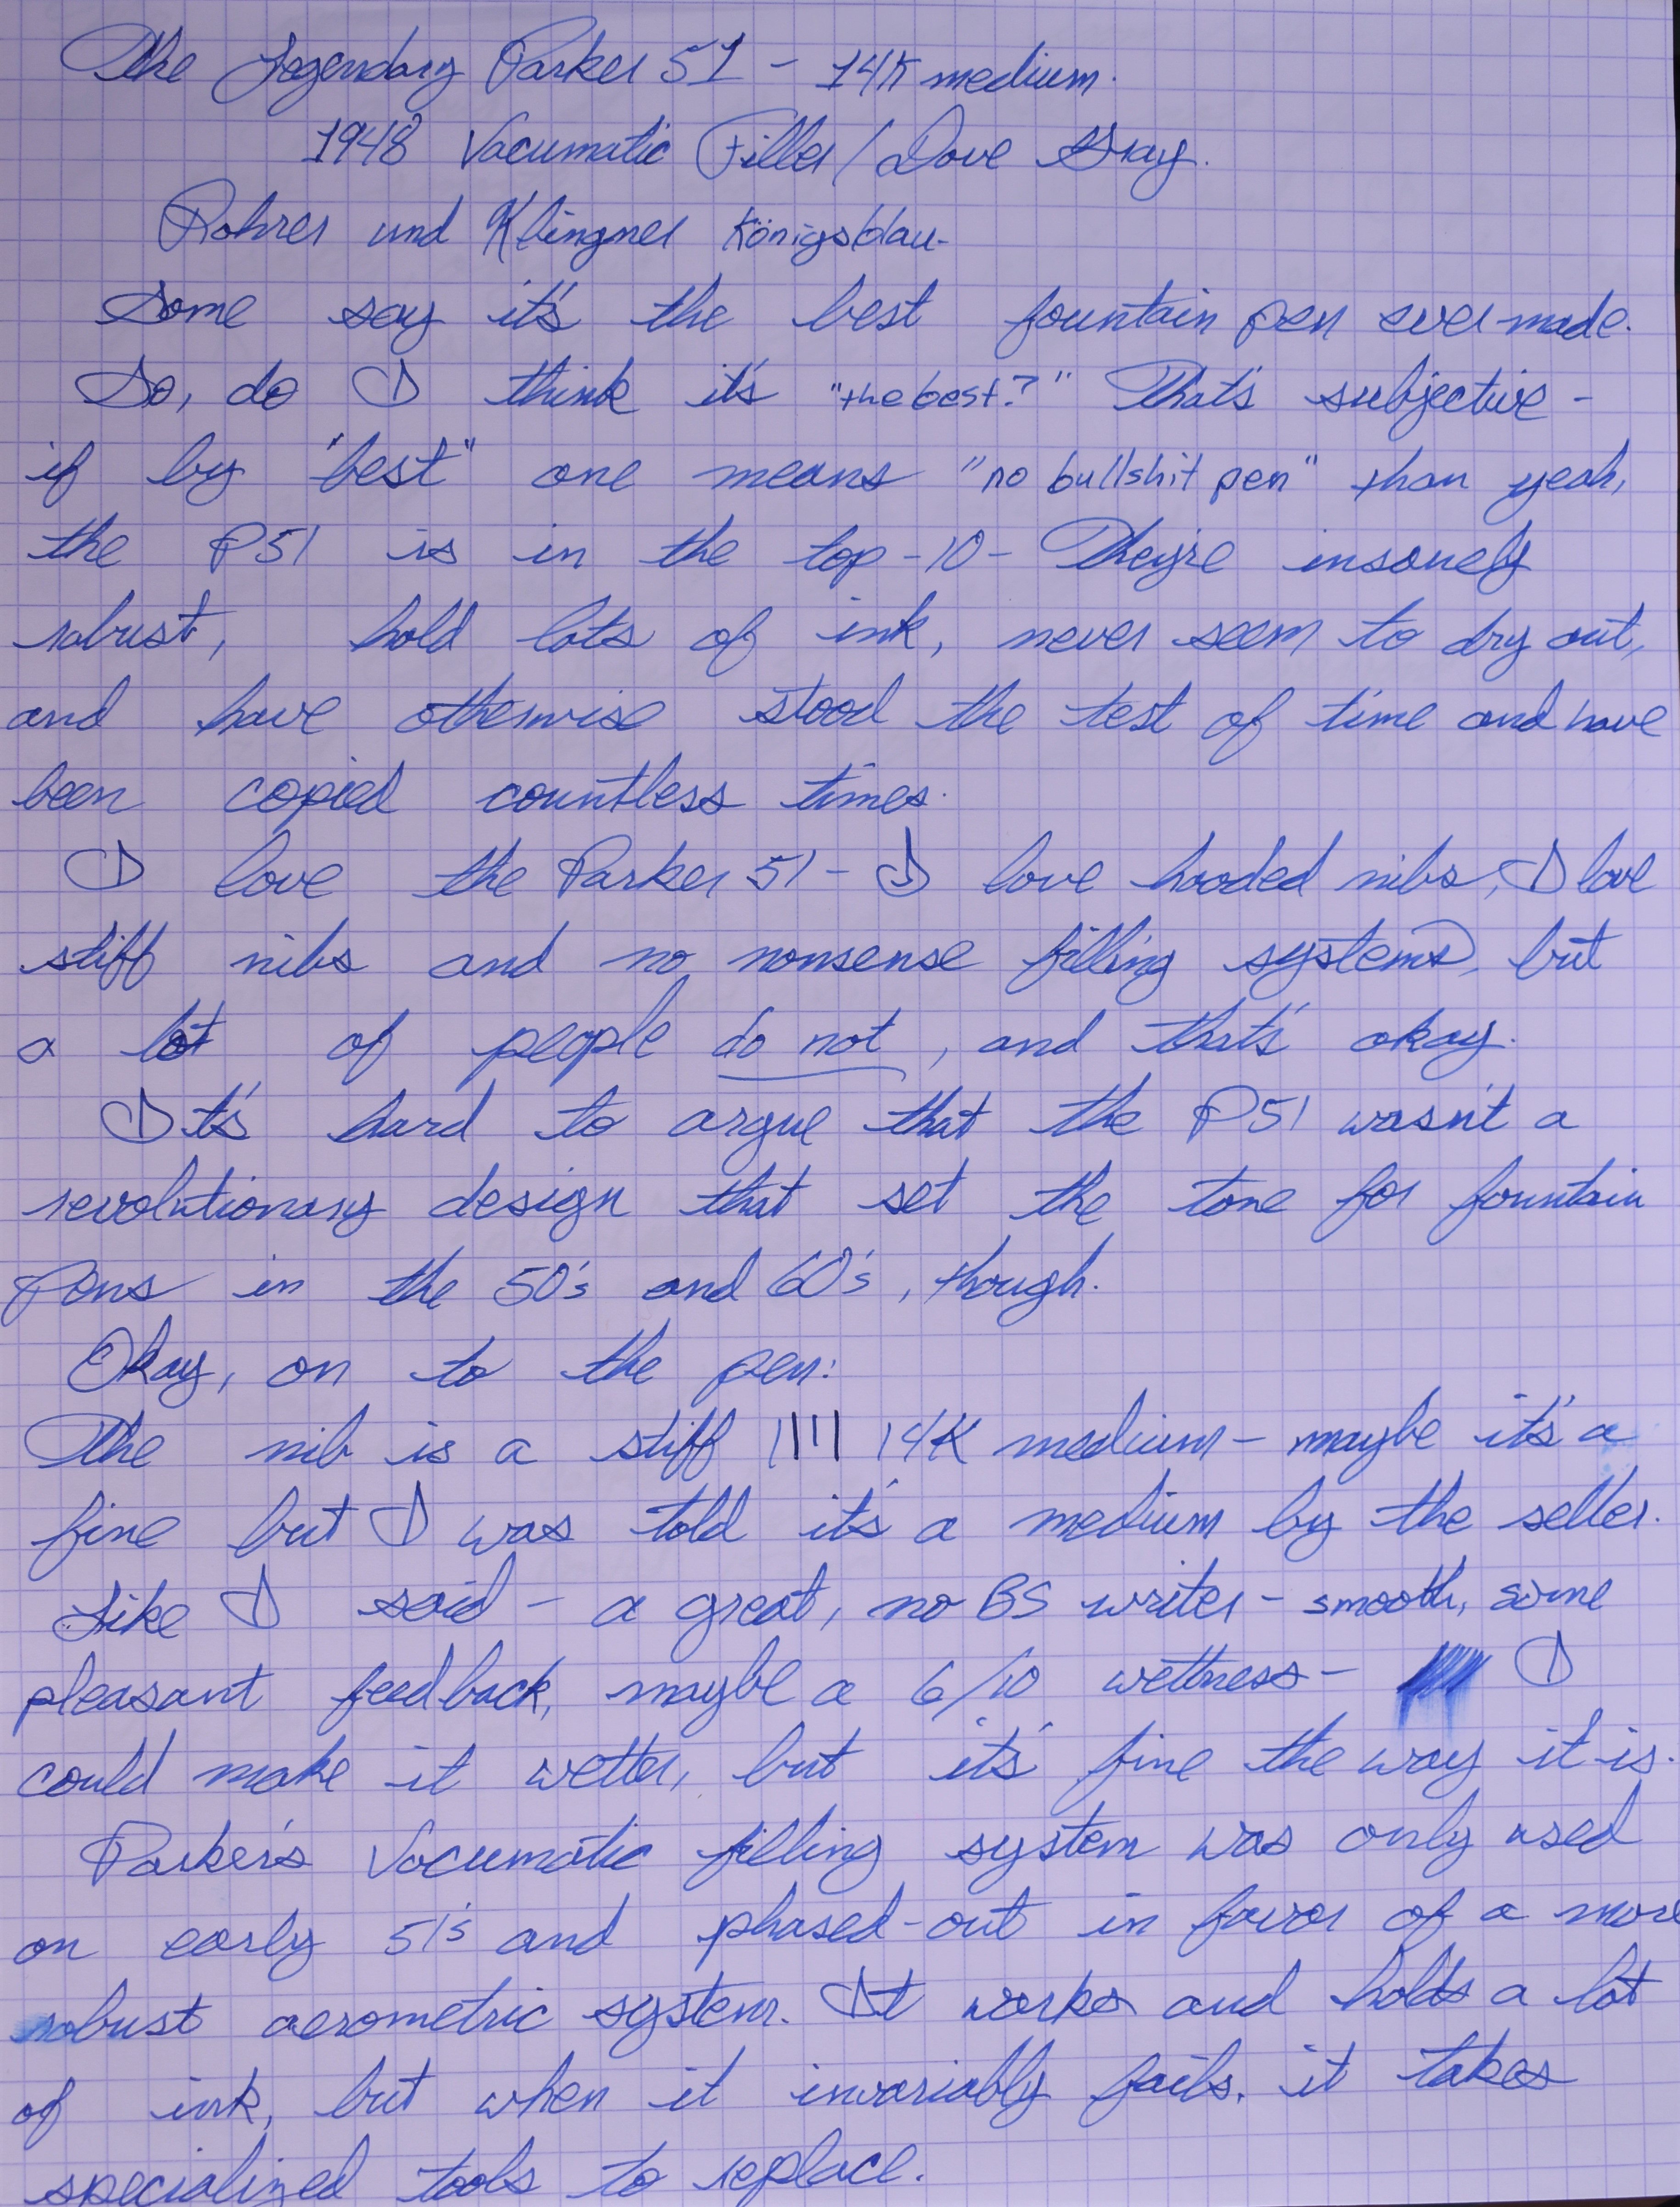 The Legendary Parker 51 - 14K medium.
1948 Vacumatic Filler / Dove Gray.
Rohrer und Klingner Königsblau-
Some say it's the best fountain pen ever made.
So, do I think it's "the best?" That's subjective -
if by "best" one means "no bullshit pen" than yeah,
the P51 is in the top-10- They're insanely
robust, hold lots of ink, never seem to dry out,
and have otherwise stood the test of time and have
been copied countless times.
I love the Parker 51 - I love hooded nibs, I love
stiff nibs and no nonsense filling systems, but
a lot of people do not, and that's okay.
It's hard to argue that the P51 wasn't a
revolutionary design that set the tone for fountain
pens in the 50's and 60's, though.
Okay, on to the pen:
The nib is a stiff 14K medium - maybe it's a
fine but I was told it's a medium by the seller.
Like I said - a great, no BS writer - smooth, some
pleasant feedback, maybe a 6/10 wettness - I
could make it wetter, but it's fine the way it is.
Parker's Vacumatic filling system was only used
on early 51's and phased-out in favor of a more
robust aerometric system. It works and holds a lot
of ink, but when it invariably fails, it takes
specialized tools to replace.